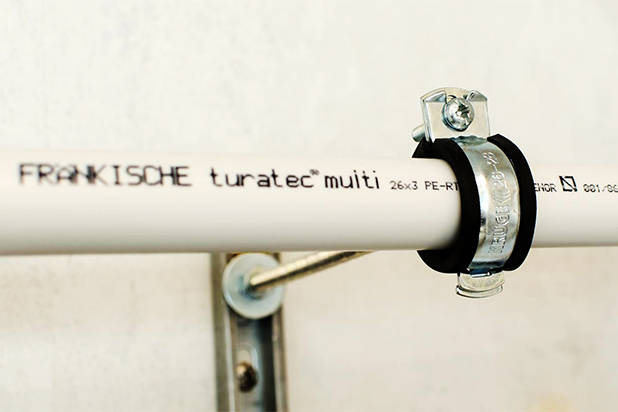 FRÄNKISCHE turatec® multi 26x3 PE-RT ENOR 001/06
26-28